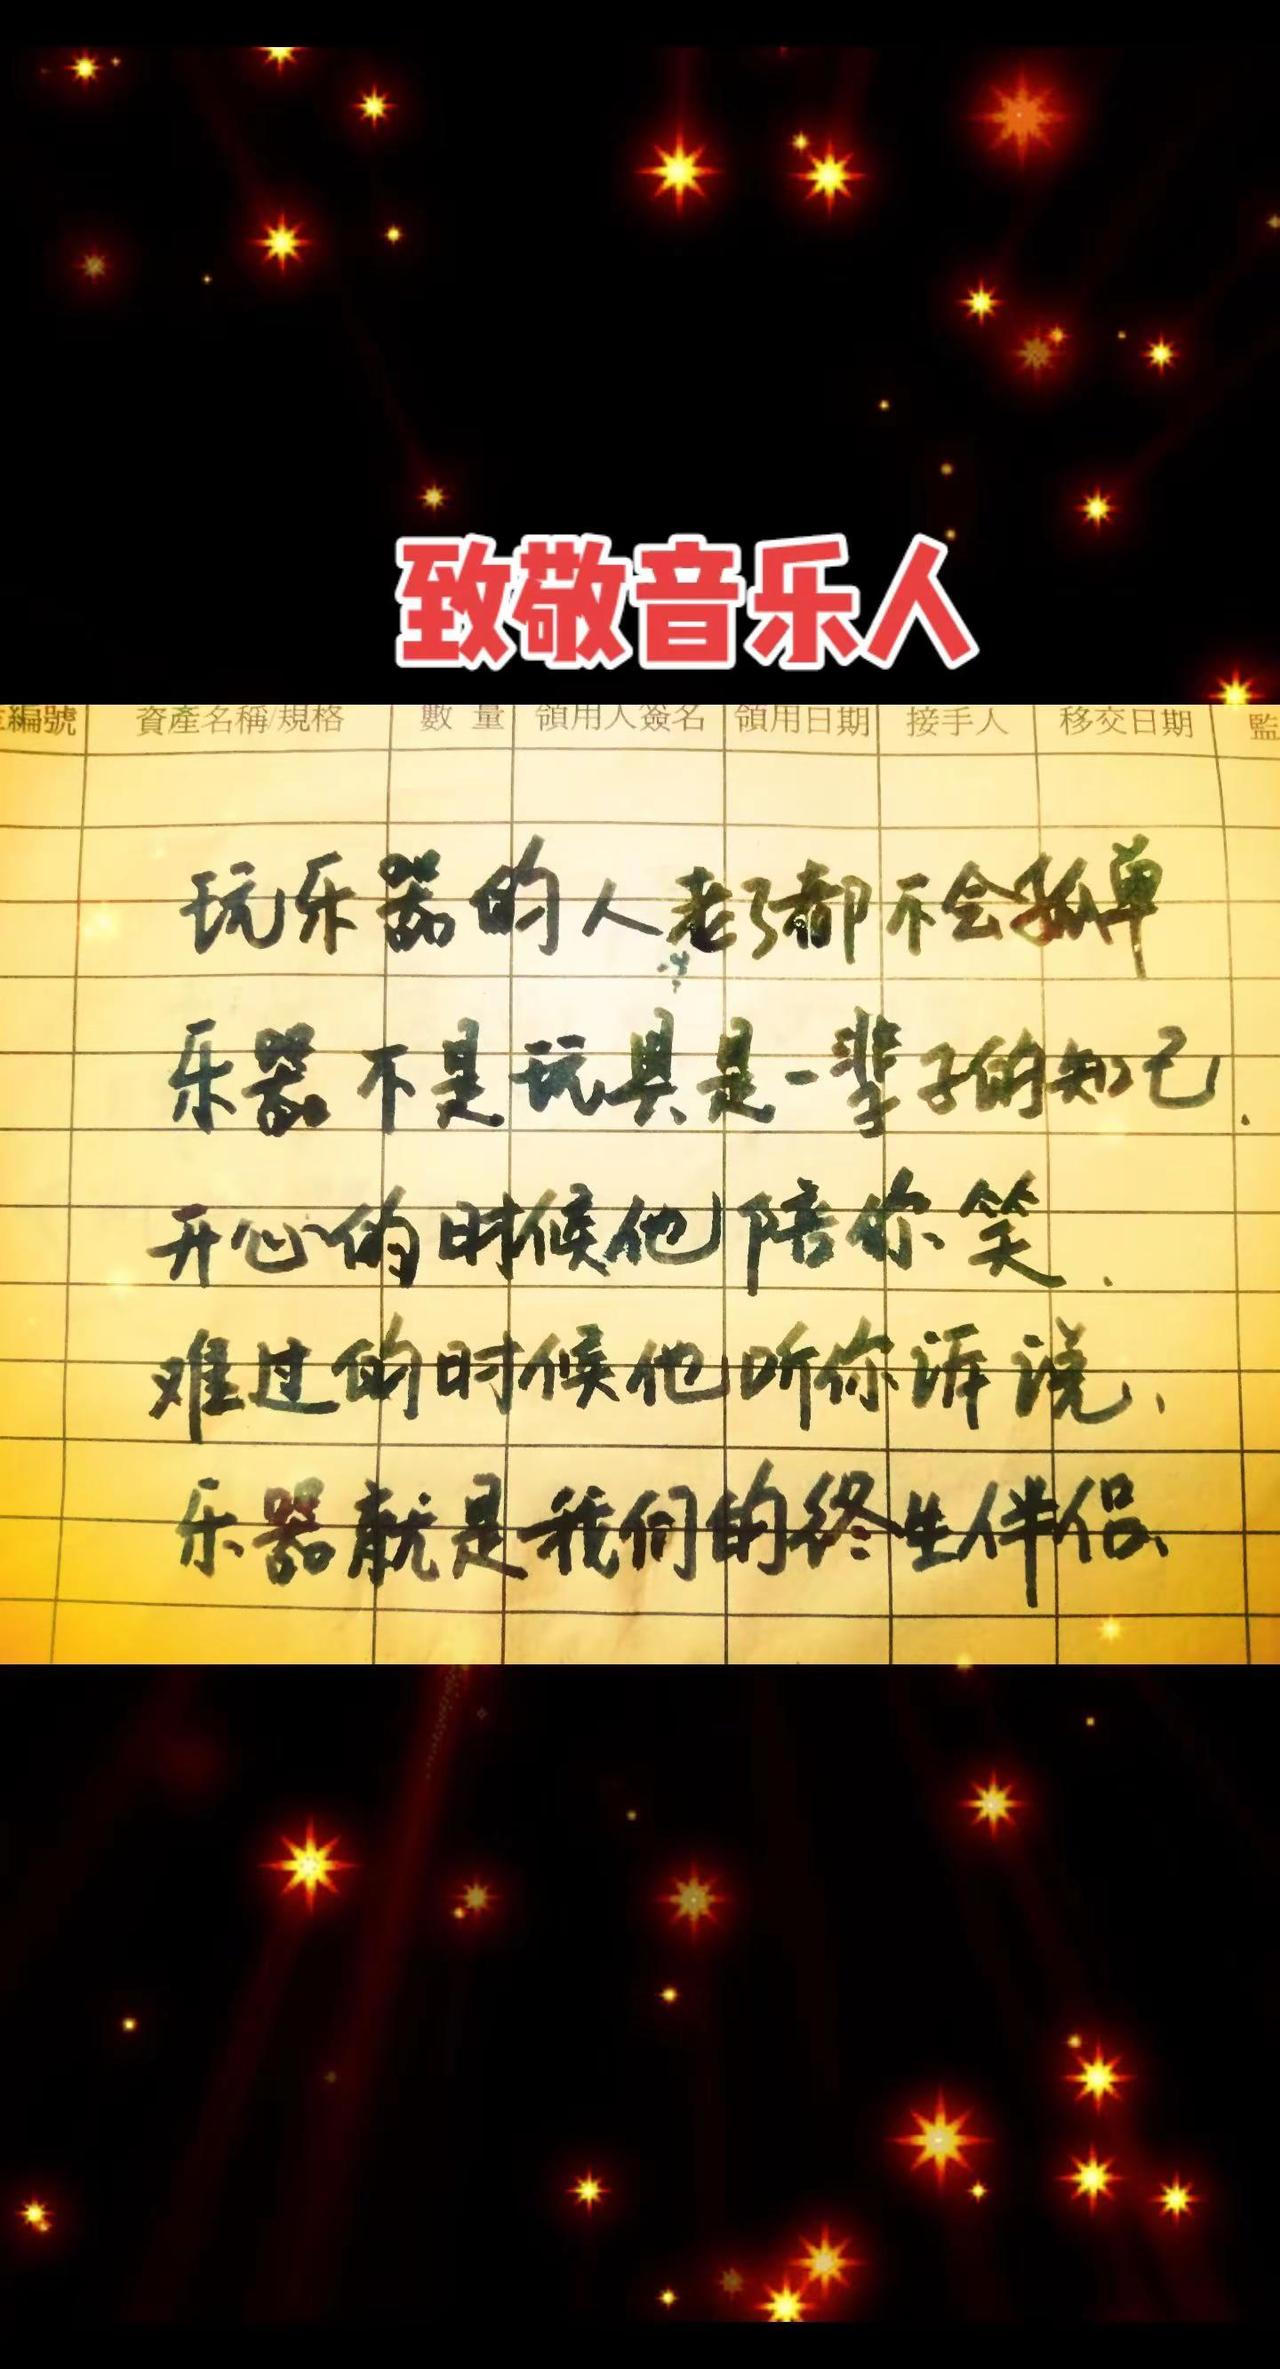 致敬音乐人
編號 資產名稱/規格 數 量 領用人簽名 領用日期 接手人 移交日期 監
玩乐器的人老了都不会孤单
乐器不是玩具是一辈子的知己.
开心的时候他陪你笑.
难过的时候他听你诉说、
乐器就是我们的终生伴侣、